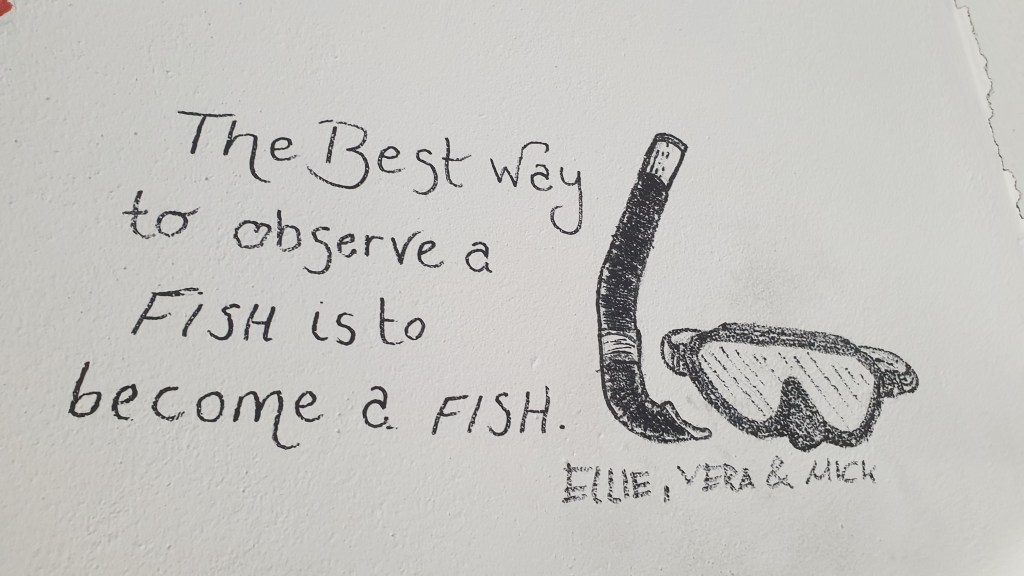 The Best way
to observe a
FISH is to
become a FISH.
ELLIE, VERA & MICK